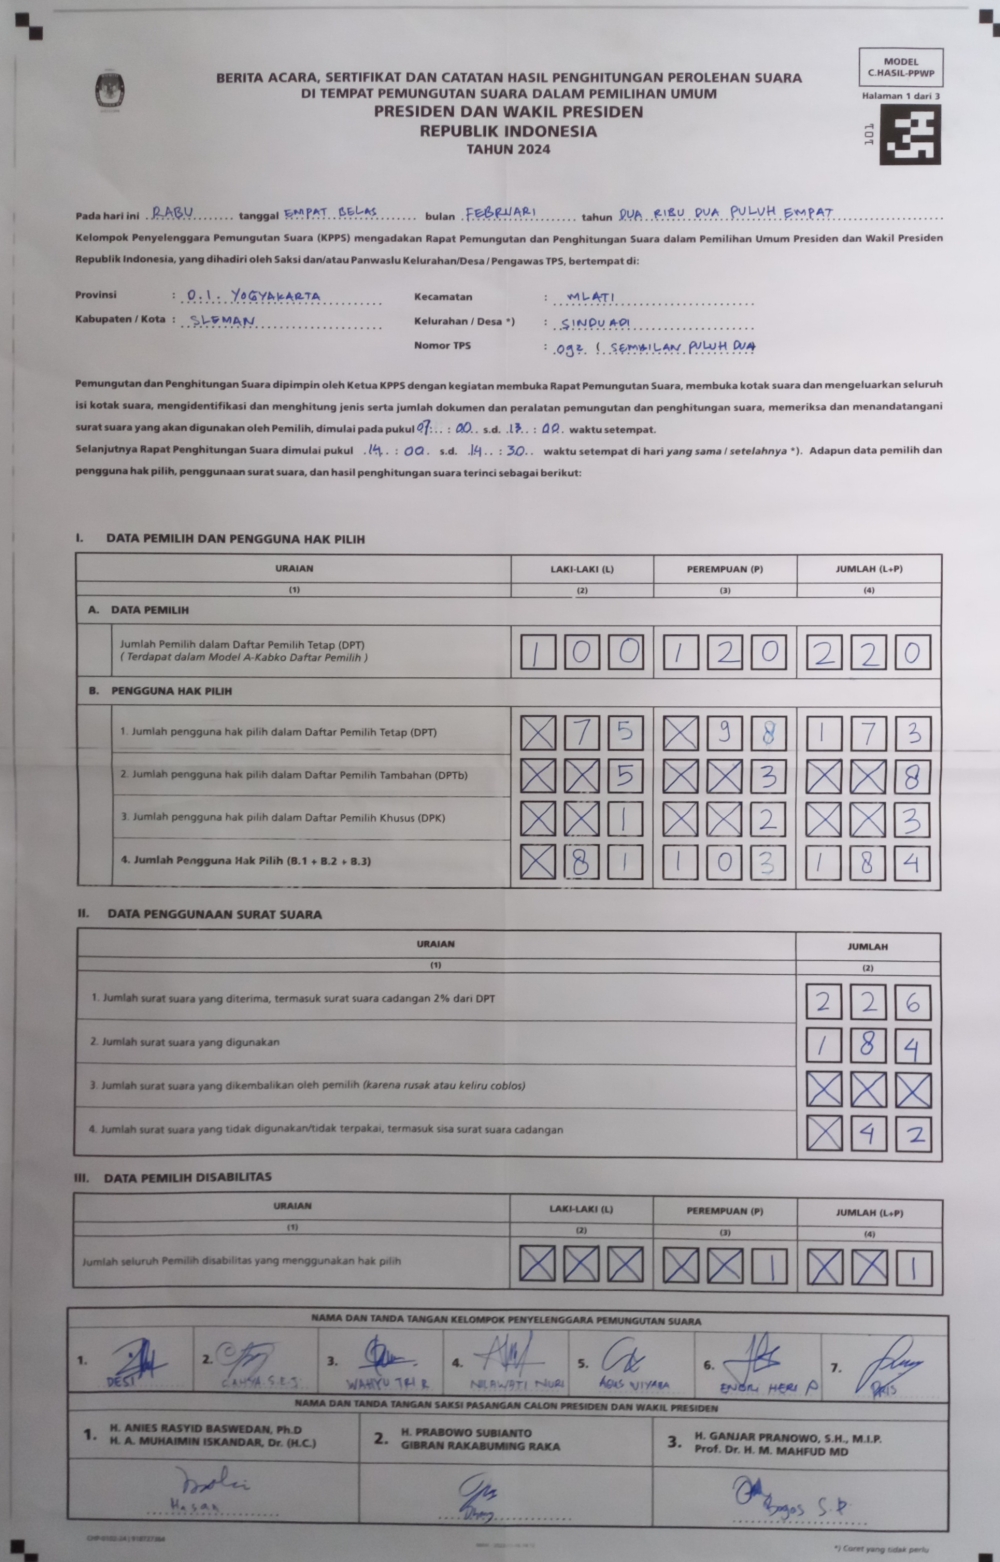 MODEL
C.HASIL-PPWP
Halaman 1 dari 3
101
BERITA ACARA, SERTIFIKAT DAN CATATAN HASIL PENGHITUNGAN PEROLEHAN SUARA
DI TEMPAT PEMUNGUTAN SUARA DALAM PEMILIHAN UMUM
PRESIDEN DAN WAKIL PRESIDEN
REPUBLIK INDONESIA
TAHUN 2024
Pada hari ini RABU tanggal EMPAT BELAS bulan FEBRUARI tahun DUA RIBU DUA PULUH EMPAT
Kelompok Penyelenggara Pemungutan Suara (KPPS) mengadakan Rapat Pemungutan dan Penghitungan Suara dalam Pemilihan Umum Presiden dan Wakil Presiden
Republik Indonesia, yang dihadiri oleh Saksi dan/atau Panwaslu Kelurahan/Desa / Pengawas TPS, bertempat di:
Provinsi : D.I. YOGYAKARTA Kecamatan : MLATI
Kabupaten / Kota : SLEMAN Kelurahan / Desa *) : SINDUADI
Nomor TPS : 092 ( SEMBILAN PULUH DUA
Pemungutan dan Penghitungan Suara dipimpin oleh Ketua KPPS dengan kegiatan membuka Rapat Pemungutan Suara, membuka kotak suara dan mengeluarkan seluruh
isi kotak suara, mengidentifikasi dan menghitung jenis serta jumlah dokumen dan peralatan pemungutan dan penghitungan suara, memeriksa dan menandatangani
surat suara yang akan digunakan oleh Pemilih, dimulai pada pukul 07 : 00 s.d. 13 : 00 waktu setempat.
Selanjutnya Rapat Penghitungan Suara dimulai pukul 14 : 00 s.d. 14 : 30 waktu setempat di hari yang sama / setelahnya *). Adapun data pemilih dan
pengguna hak pilih, penggunaan surat suara, dan hasil penghitungan suara terinci sebagai berikut:
I. DATA PEMILIH DAN PENGGUNA HAK PILIH
URAIAN LAKI-LAKI (L) PEREMPUAN (P) JUMLAH (L+P)
(1) (2) (3) (4)
A. DATA PEMILIH
Jumlah Pemilih dalam Daftar Pemilih Tetap (DPT)
( Terdapat dalam Model A-Kabko Daftar Pemilih )
1 0 0 1 2 0 2 2 0
B. PENGGUNA HAK PILIH
1. Jumlah pengguna hak pilih dalam Daftar Pemilih Tetap (DPT) X 7 5 X 9 8 1 7 3
2. Jumlah pengguna hak pilih dalam Daftar Pemilih Tambahan (DPTb) X X 5 X X 3 X X 8
3. Jumlah pengguna hak pilih dalam Daftar Pemilih Khusus (DPK) X X 1 X X 2 X X 3
4. Jumlah Pengguna Hak Pilih (B.1 + B.2 + B.3) X 8 1 1 0 3 1 8 4
II. DATA PENGGUNAAN SURAT SUARA
URAIAN JUMLAH
(1) (2)
1. Jumlah surat suara yang diterima, termasuk surat suara cadangan 2% dari DPT 2 2 6
2. Jumlah surat suara yang digunakan 1 8 4
3. Jumlah surat suara yang dikembalikan oleh pemilih (karena rusak atau keliru coblos) X X X
4. Jumlah surat suara yang tidak digunakan/tidak terpakai, termasuk sisa surat suara cadangan X 4 2
III. DATA PEMILIH DISABILITAS
URAIAN LAKI-LAKI (L) PEREMPUAN (P) JUMLAH (L+P)
(1) (2) (3) (4)
Jumlah seluruh Pemilih disabilitas yang menggunakan hak pilih X X X X X 1 X X 1
NAMA DAN TANDA TANGAN KELOMPOK PENYELENGGARA PEMUNGUTAN SUARA
1. 2. 3. 4. 5. 6. 7.
DESI CAHYA S.E.J WAHYU TRI R NILAWATI NURI AGUS ENDRI HERI P
NAMA DAN TANDA TANGAN SAKSI PASANGAN CALON PRESIDEN DAN WAKIL PRESIDEN
1. H. ANIES RASYID BASWEDAN, Ph.D
H. A. MUHAIMIN ISKANDAR, Dr. (H.C.)
2. H. PRABOWO SUBIANTO
GIBRAN RAKABUMING RAKA
3. H. GANJAR PRANOWO, S.H., M.I.P.
Prof. Dr. H. M. MAHFUD MD
Hasan
Bagos S.P.
*) Coret yang tidak perlu